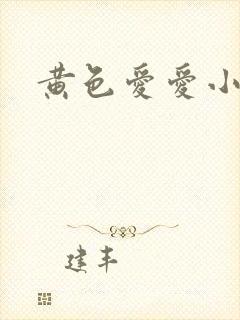 黄色愛愛小
建丰